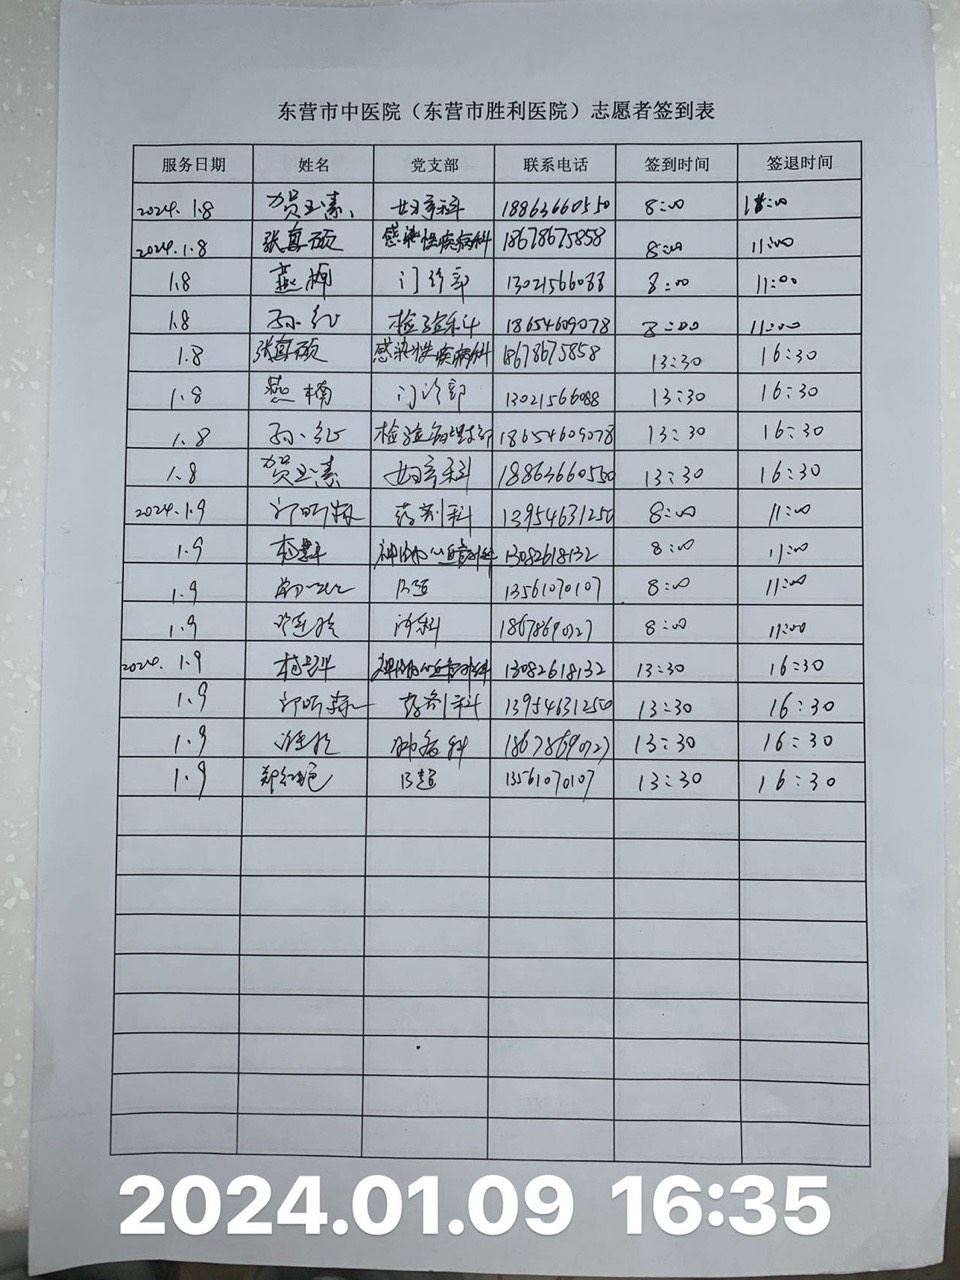 东营市中医院（东营市胜利医院）志愿者签到表
服务日期 姓名 党支部 联系电话 签到时间 签退时间
2024.1.8 贺玉素 妇产科 18863660550 8:00 11:00
2024.1.8 张真硕 感染性疾病科 18678675858 8:00 11:00
1.8 燕楠 门诊部 13021566088 8:00 11:00
1.8 孙红 检验科 18654609078 8:00 11:00
1.8 张真硕 感染性疾病科 18678675858 13:30 16:30
1.8 燕楠 门诊部 13021566088 13:30 16:30
1.8 孙红 检验病理支部 18654609078 13:30 16:30
1.8 贺玉素 妇产科 18863660550 13:30 16:30
2024.1.9 药剂科 13954631250 8:00 11:00
1.9 13082618132 8:00 11:00
1.9 B超 13561070107 8:00 11:00
1.9 18678690727 8:00 11:00
2024.1.9 13082618132 13:30 16:30
1.9 药剂科 13954631250 13:30 16:30
1.9 肺病科 18678690727 13:30 16:30
1.9 郑红艳 B超 13561070107 13:30 16:30
2024.01.09 16:35